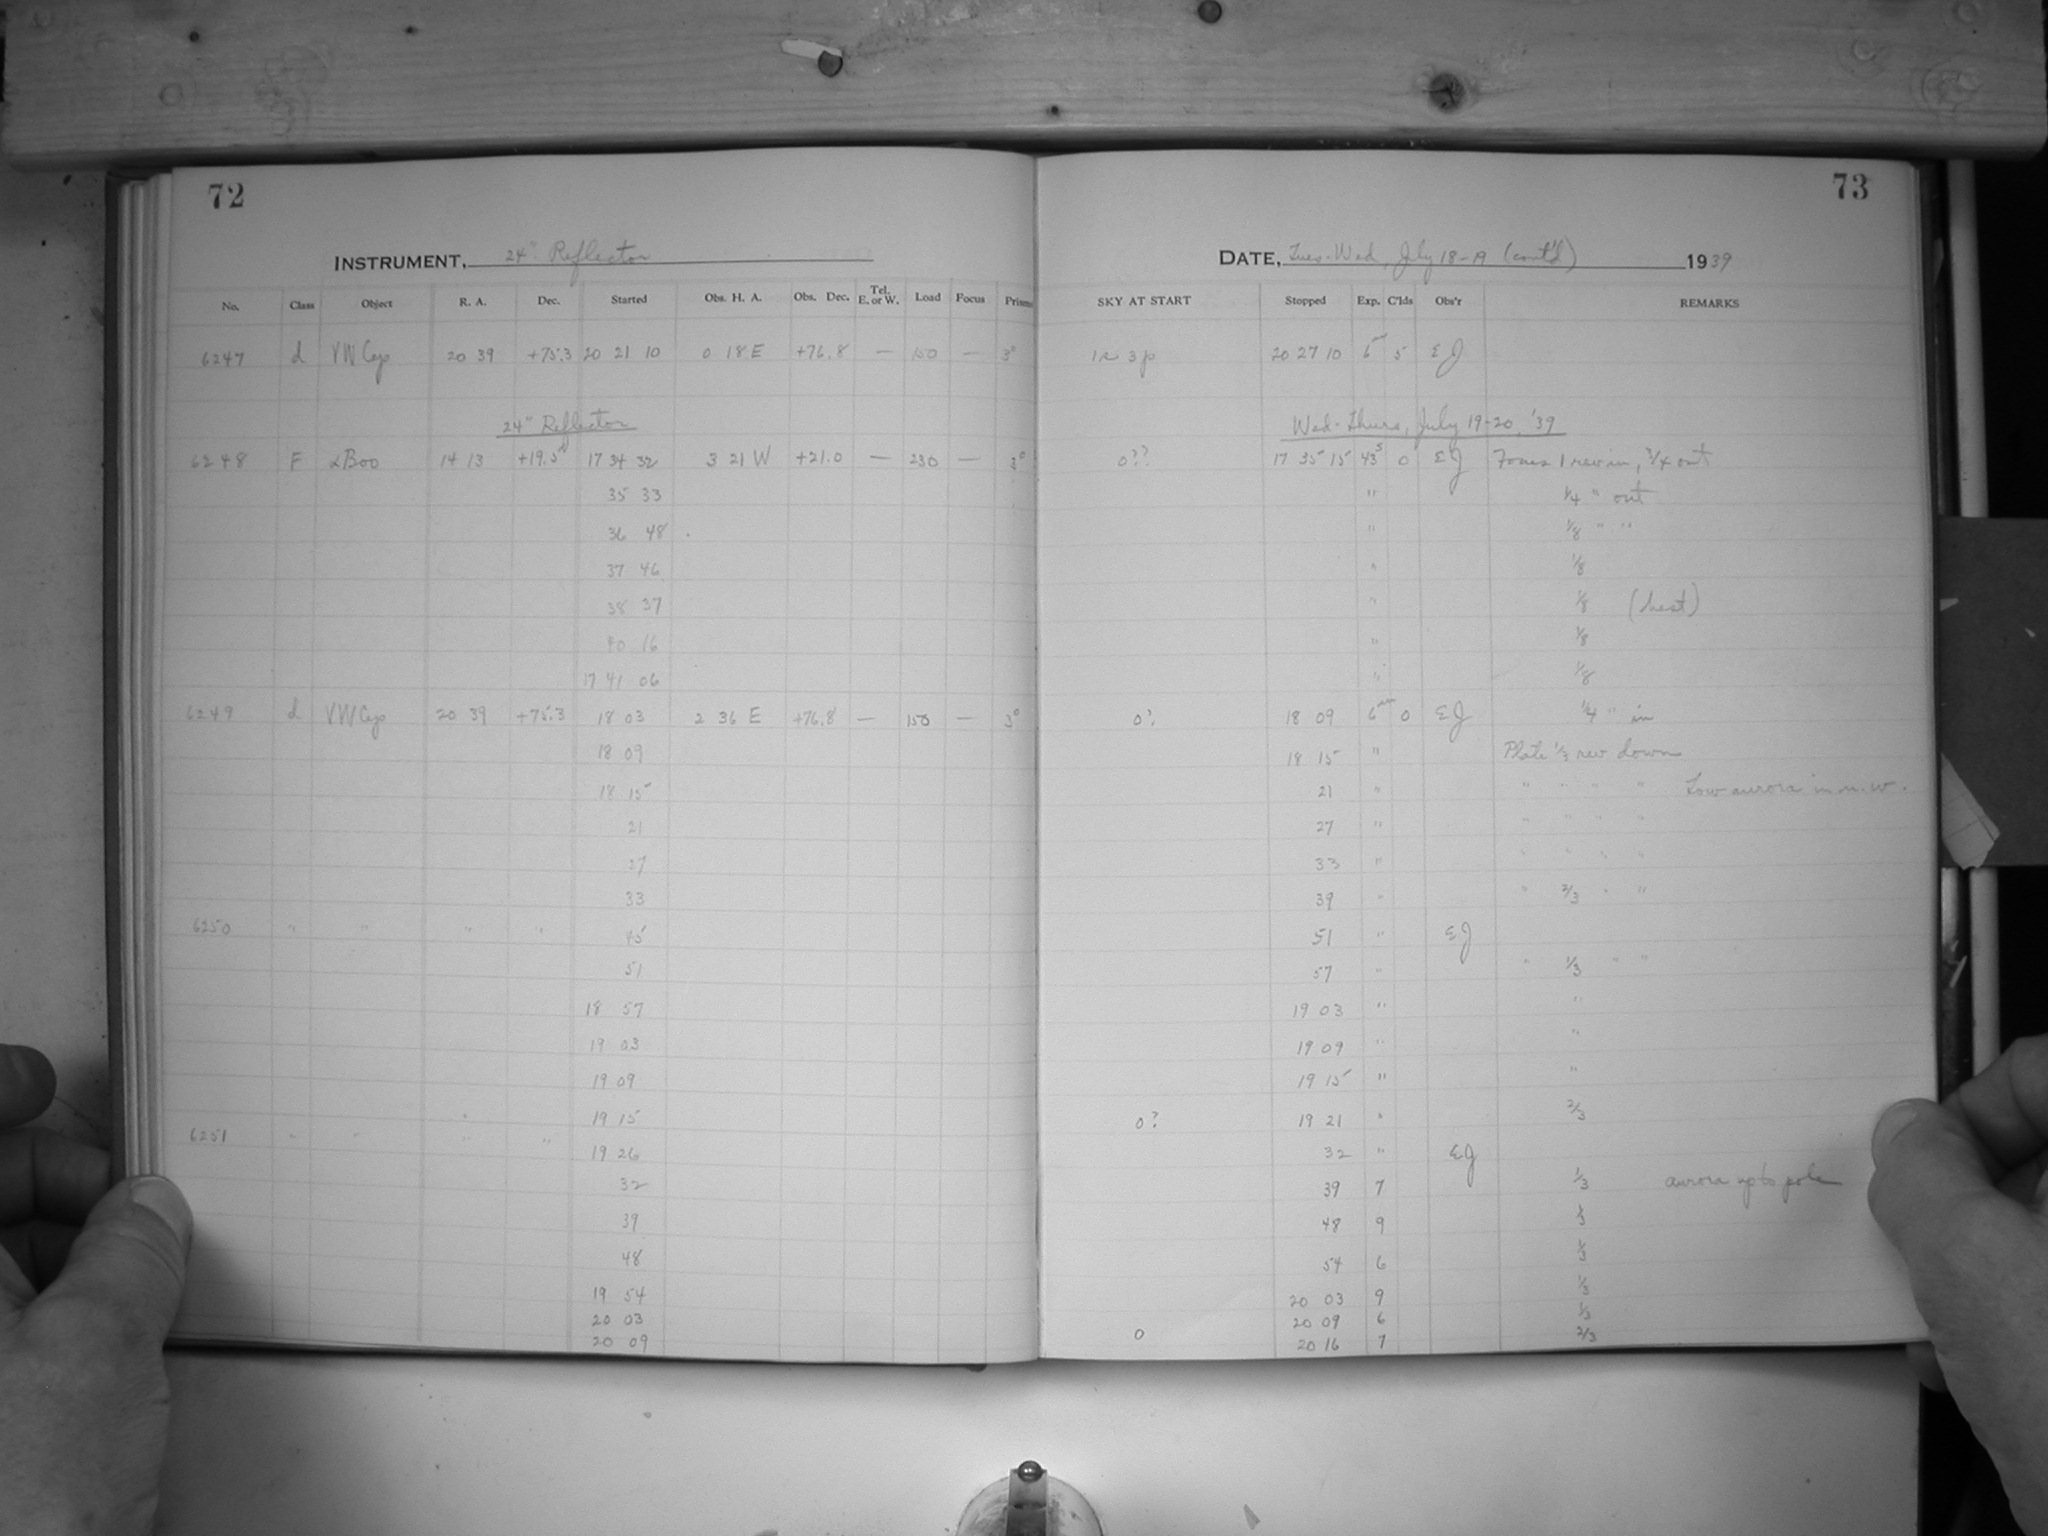 72
INSTRUMENT, 24" Reflector
No. Class Object R. A. Dec. Started Obs. H. A. Obs. Dec. Tel. E. or W. Load Focus Prism
6247 d VW Cep 20 39 +75.3 20 21 10 0 18 E +76.8 — 150 — 3°
24" Reflector
6248 F αBoo 14 13 +19.5 17 34 32 3 21 W +21.0 — 230 — 3°
35 33
36 48
37 46
38 37
40 16
17 41 06
6249 d VW Cep 20 39 +75.3 18 03 2 36 E +76.8 — 150 — 3°
18 09
18 15
21
27
33
6250 " " " " 45
51
18 57
19 03
19 09
19 15
6251 " " " " 19 26
32
39
48
19 54
20 03
20 09
73
DATE, Tues-Wed, July 18-19 (cont'd) 1939
SKY AT START Stopped Exp. C'lds Obs'r REMARKS
3p 20 27 10 6m 5 EJ
Wed-Thurs, July 19-20, '39
0?? 17 35 15 43s 0 EJ Focus 1 rev in, 3/4 out
" 1/4 " out
" 1/8 " "
" 1/8
" 1/8 (best)
" 1/8
" 1/8
0? 18 09 6m 0 EJ 1/4 " in
18 15 " Plate 1/3 rev down
21 " " " " " Low aurora in n.w.
27 " " " " "
33 " " " " "
39 " " 2/3 " "
51 " EJ
57 " " 1/3 " "
19 03 " "
19 09 " "
19 15 " "
0? 19 21 " 2/3
32 " EJ
39 7 1/3 aurora up to pole
48 9 1/3
54 6 1/3
20 03 9 1/3
20 09 6 1/3
0 20 16 7 2/3